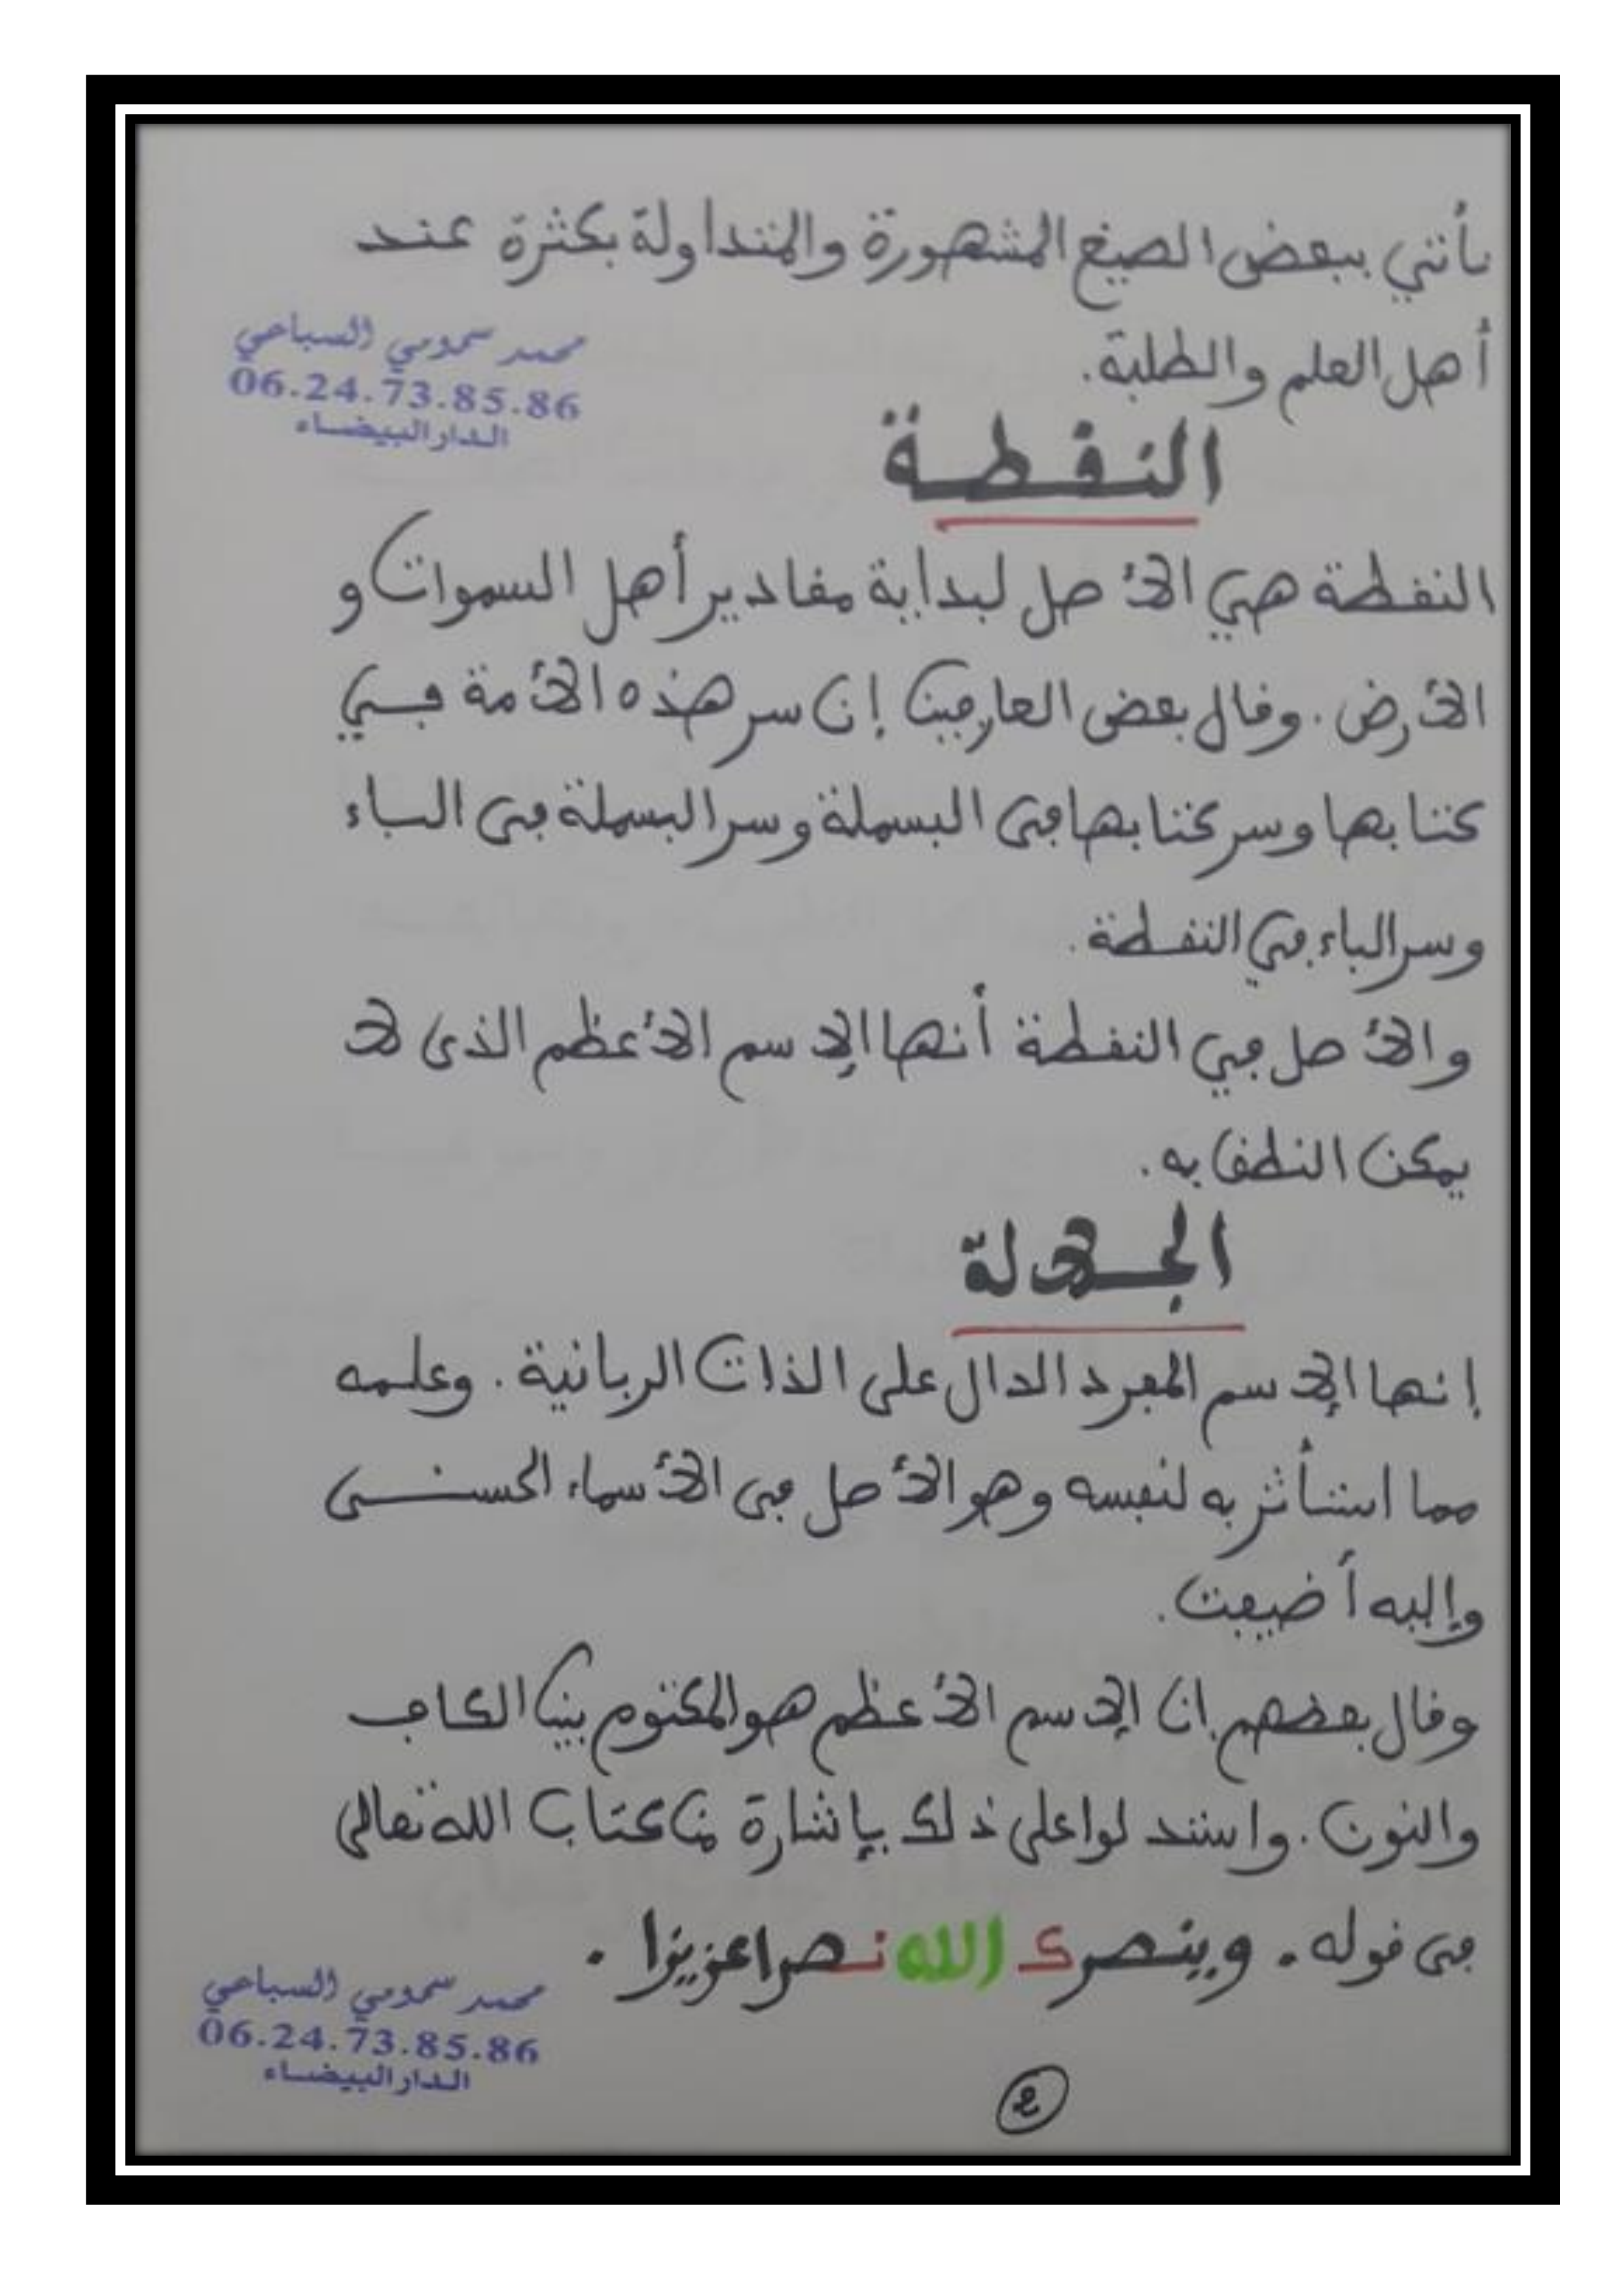 يأتي ببعض الصيغ المشهورة والمتداولة بكثرة عند
محمد سمومي السباعي
أهل العلم والطلبة.
06.24.73.85.86
الدار البيضاء
النقطة
النقطة هي الأصل لبداية مقادير أهل السموات و
الأرض. وقال بعض العارفين إن سر هذه الأمة في
كتابها وسر كتابها في البسملة وسر البسملة في الباء
وسر الباء في النقطة.
والأصل في النقطة أنها الإسم الأعظم الذي لا
يمكن النطق به.
الجلالة
إنها الإسم المفرد الدال على الذات الربانية. وعلمه
مما استأثر به لنفسه وهو الأصل في الأسماء الحسنى
وإليه أضيفت.
وقال بعضهم إن الإسم الأعظم هو المكتوم بين الكاف
والنون. واستدلوا على ذلك بإشارة من كتاب الله تعالى
في قوله. وينصرك الله نصرا عزيزا.
محمد سمومي السباعي
06.24.73.85.86
الدار البيضاء
2